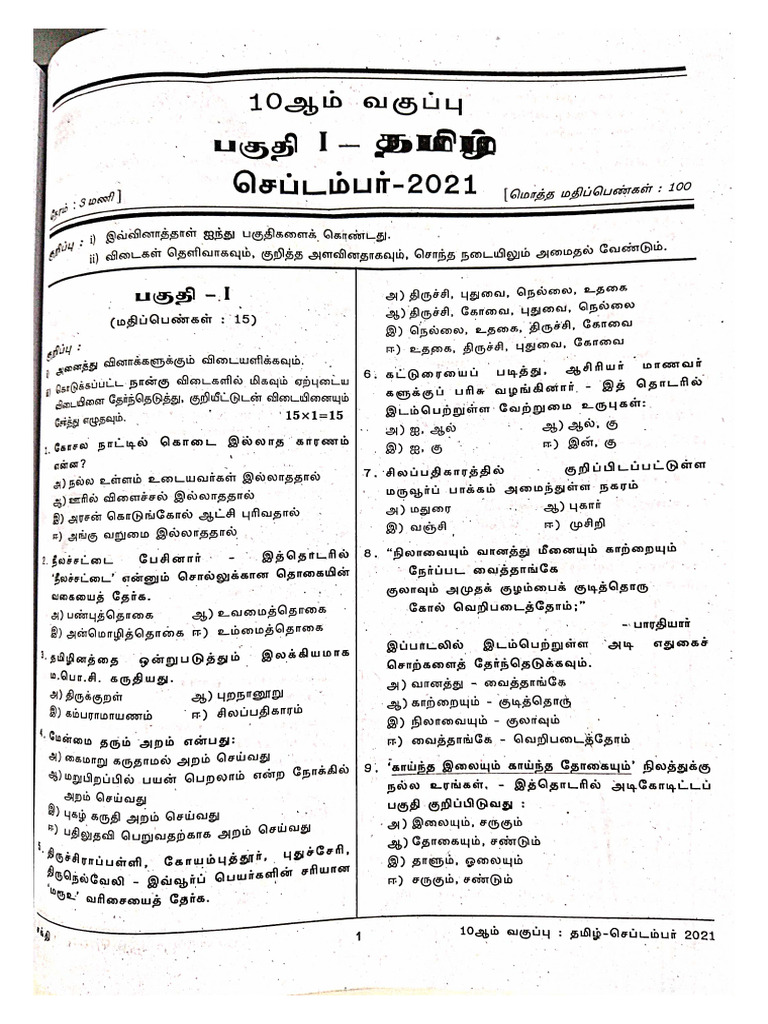 10ஆம் வகுப்பு
பகுதி I – தமிழ்
செப்டம்பர்-2021
நேரம் : 3 மணி ]
[மொத்த மதிப்பெண்கள் : 100
குறிப்பு : i) இவ்வினாத்தாள் ஐந்து பகுதிகளைக் கொண்டது.
ii) விடைகள் தெளிவாகவும், குறித்த அளவினதாகவும், சொந்த நடையிலும் அமைதல் வேண்டும்.
பகுதி – I
(மதிப்பெண்கள் : 15)
குறிப்பு :
i) அனைத்து வினாக்களுக்கும் விடையளிக்கவும்.
ii) கொடுக்கப்பட்ட நான்கு விடைகளில் மிகவும் ஏற்புடைய
விடையினை தேர்ந்தெடுத்து, குறியீட்டுடன் விடையினையும்
சேர்த்து எழுதவும். 15×1=15
1. கோசல நாட்டில் கொடை இல்லாத காரணம்
என்ன?
அ) நல்ல உள்ளம் உடையவர்கள் இல்லாததால்
ஆ) ஊரில் விளைச்சல் இல்லாததால்
இ) அரசன் கொடுங்கோல் ஆட்சி புரிவதால்
ஈ) அங்கு வறுமை இல்லாததால்
2. நீலச்சட்டை பேசினார் – இத்தொடரில்
'நீலச்சட்டை' என்னும் சொல்லுக்கான தொகையின்
வகையைத் தேர்க.
அ) பண்புத்தொகை ஆ) உவமைத்தொகை
இ) அன்மொழித்தொகை ஈ) உம்மைத்தொகை
3. தமிழினத்தை ஒன்றுபடுத்தும் இலக்கியமாக
ம.பொ.சி. கருதியது.
அ) திருக்குறள் ஆ) புறநானூறு
இ) கம்பராமாயணம் ஈ) சிலப்பதிகாரம்
4. மேன்மை தரும் அறம் என்பது:
அ) கைமாறு கருதாமல் அறம் செய்வது
ஆ) மறுபிறப்பில் பயன் பெறலாம் என்ற நோக்கில்
அறம் செய்வது
இ) புகழ் கருதி அறம் செய்வது
ஈ) பதிலுதவி பெறுவதற்காக அறம் செய்வது
5. திருச்சிராப்பள்ளி, கோயம்புத்தூர், புதுச்சேரி,
திருநெல்வேலி – இவ்வூர்ப் பெயர்களின் சரியான
'மரூஉ' வரிசையைத் தேர்க.
அ) திருச்சி, புதுவை, நெல்லை, உதகை
ஆ) திருச்சி, கோவை, புதுவை, நெல்லை
இ) நெல்லை, உதகை, திருச்சி, கோவை
ஈ) உதகை, திருச்சி, புதுவை, கோவை
6. கட்டுரையைப் படித்து, ஆசிரியர் மாணவர்
களுக்குப் பரிசு வழங்கினார். – இத் தொடரில்
இடம்பெற்றுள்ள வேற்றுமை உருபுகள்:
அ) ஐ, ஆல் ஆ) ஆல், கு
இ) ஐ, கு ஈ) இன், கு
7. சிலப்பதிகாரத்தில் குறிப்பிடப்பட்டுள்ள
மருவூர் பாக்கம் அமைந்துள்ள நகரம்
அ) மதுரை ஆ) புகார்
இ) வஞ்சி ஈ) முசிறி
8. "நிலாவையும் வானத்து மீனையும் காற்றையும்
நேர்ப்பட வைத்தாங்கே
குலாவும் அமுதக் குழம்பைக் குடித்தொரு
கோல் வெறிபடைத்தோம்;"
– பாரதியார்
இப்பாடலில் இடம்பெற்றுள்ள அடி எதுகைச்
சொற்களைத் தேர்ந்தெடுக்கவும்.
அ) வானத்து – வைத்தாங்கே
ஆ) காற்றையும் – குடித்தொரு
இ) நிலாவையும் – குலாவும்
ஈ) வைத்தாங்கே – வெறிபடைத்தோம்
9. 'காய்ந்த இலையும் காய்ந்த தோகையும்' நிலத்துக்கு
நல்ல உரங்கள். – இத்தொடரில் அடிகோடிட்டப்
பகுதி குறிப்பிடுவது :
அ) இலையும், சருகும்
ஆ) தோகையும், சண்டும்
இ) தாளும், ஓலையும்
ஈ) சருகும், சண்டும்
1
10ஆம் வகுப்பு : தமிழ்–செப்டம்பர் 2021